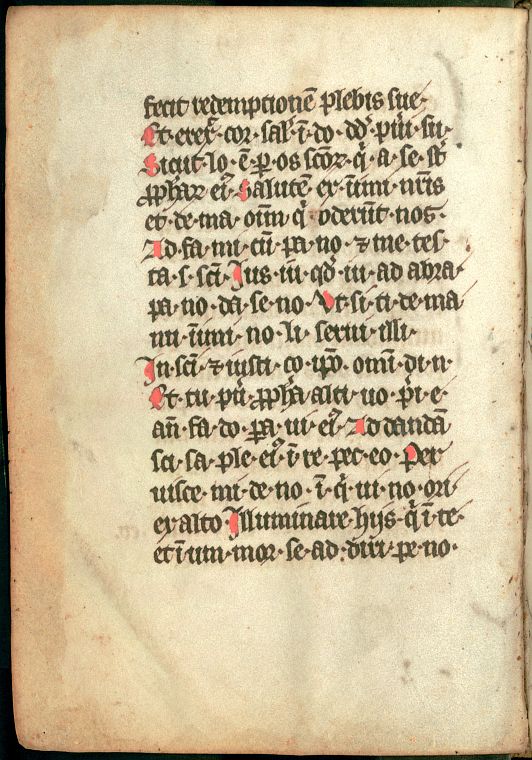 fecit redemptionē plebis sue·
Et·erex̄·cor·sal̄·ī·do·dd̄·pūi·su·
Sicut·lo·ē·p̄·os·sc̄or·q̄·a·se·st̄
ꝓph̄ar ei9 Salutē ex·īimi·nr̄is
et·de·ma·oīm q̄ oderūt nos·
Ad·fa·mi·cū·pa·no·⁊·me·tes·
ta·s·sc̄i·Jus·iu·qd̄·iu·ad abra·
pa·no·da·se·no·Vt·si·ti·de·ma
nu·īimi·no·li·serui·illi·
In·sc̄i·⁊·iusti·co·ip̄o·omī·di·n·
Et·tu·pū·ꝓph̄a alti·uo·p̄i·e·
an̄·fa·do·pa·ui·ei9·Ad dandā
sci·sa·ple·ei9·ī·re·pec·eo·Per
uisce·mi·de·no·ī·q̄·ui·no·ori·
ex alto·Illuminare·hijs·q̄·ī·te·
et ī um·mor·se·ad·diri·pe·no·